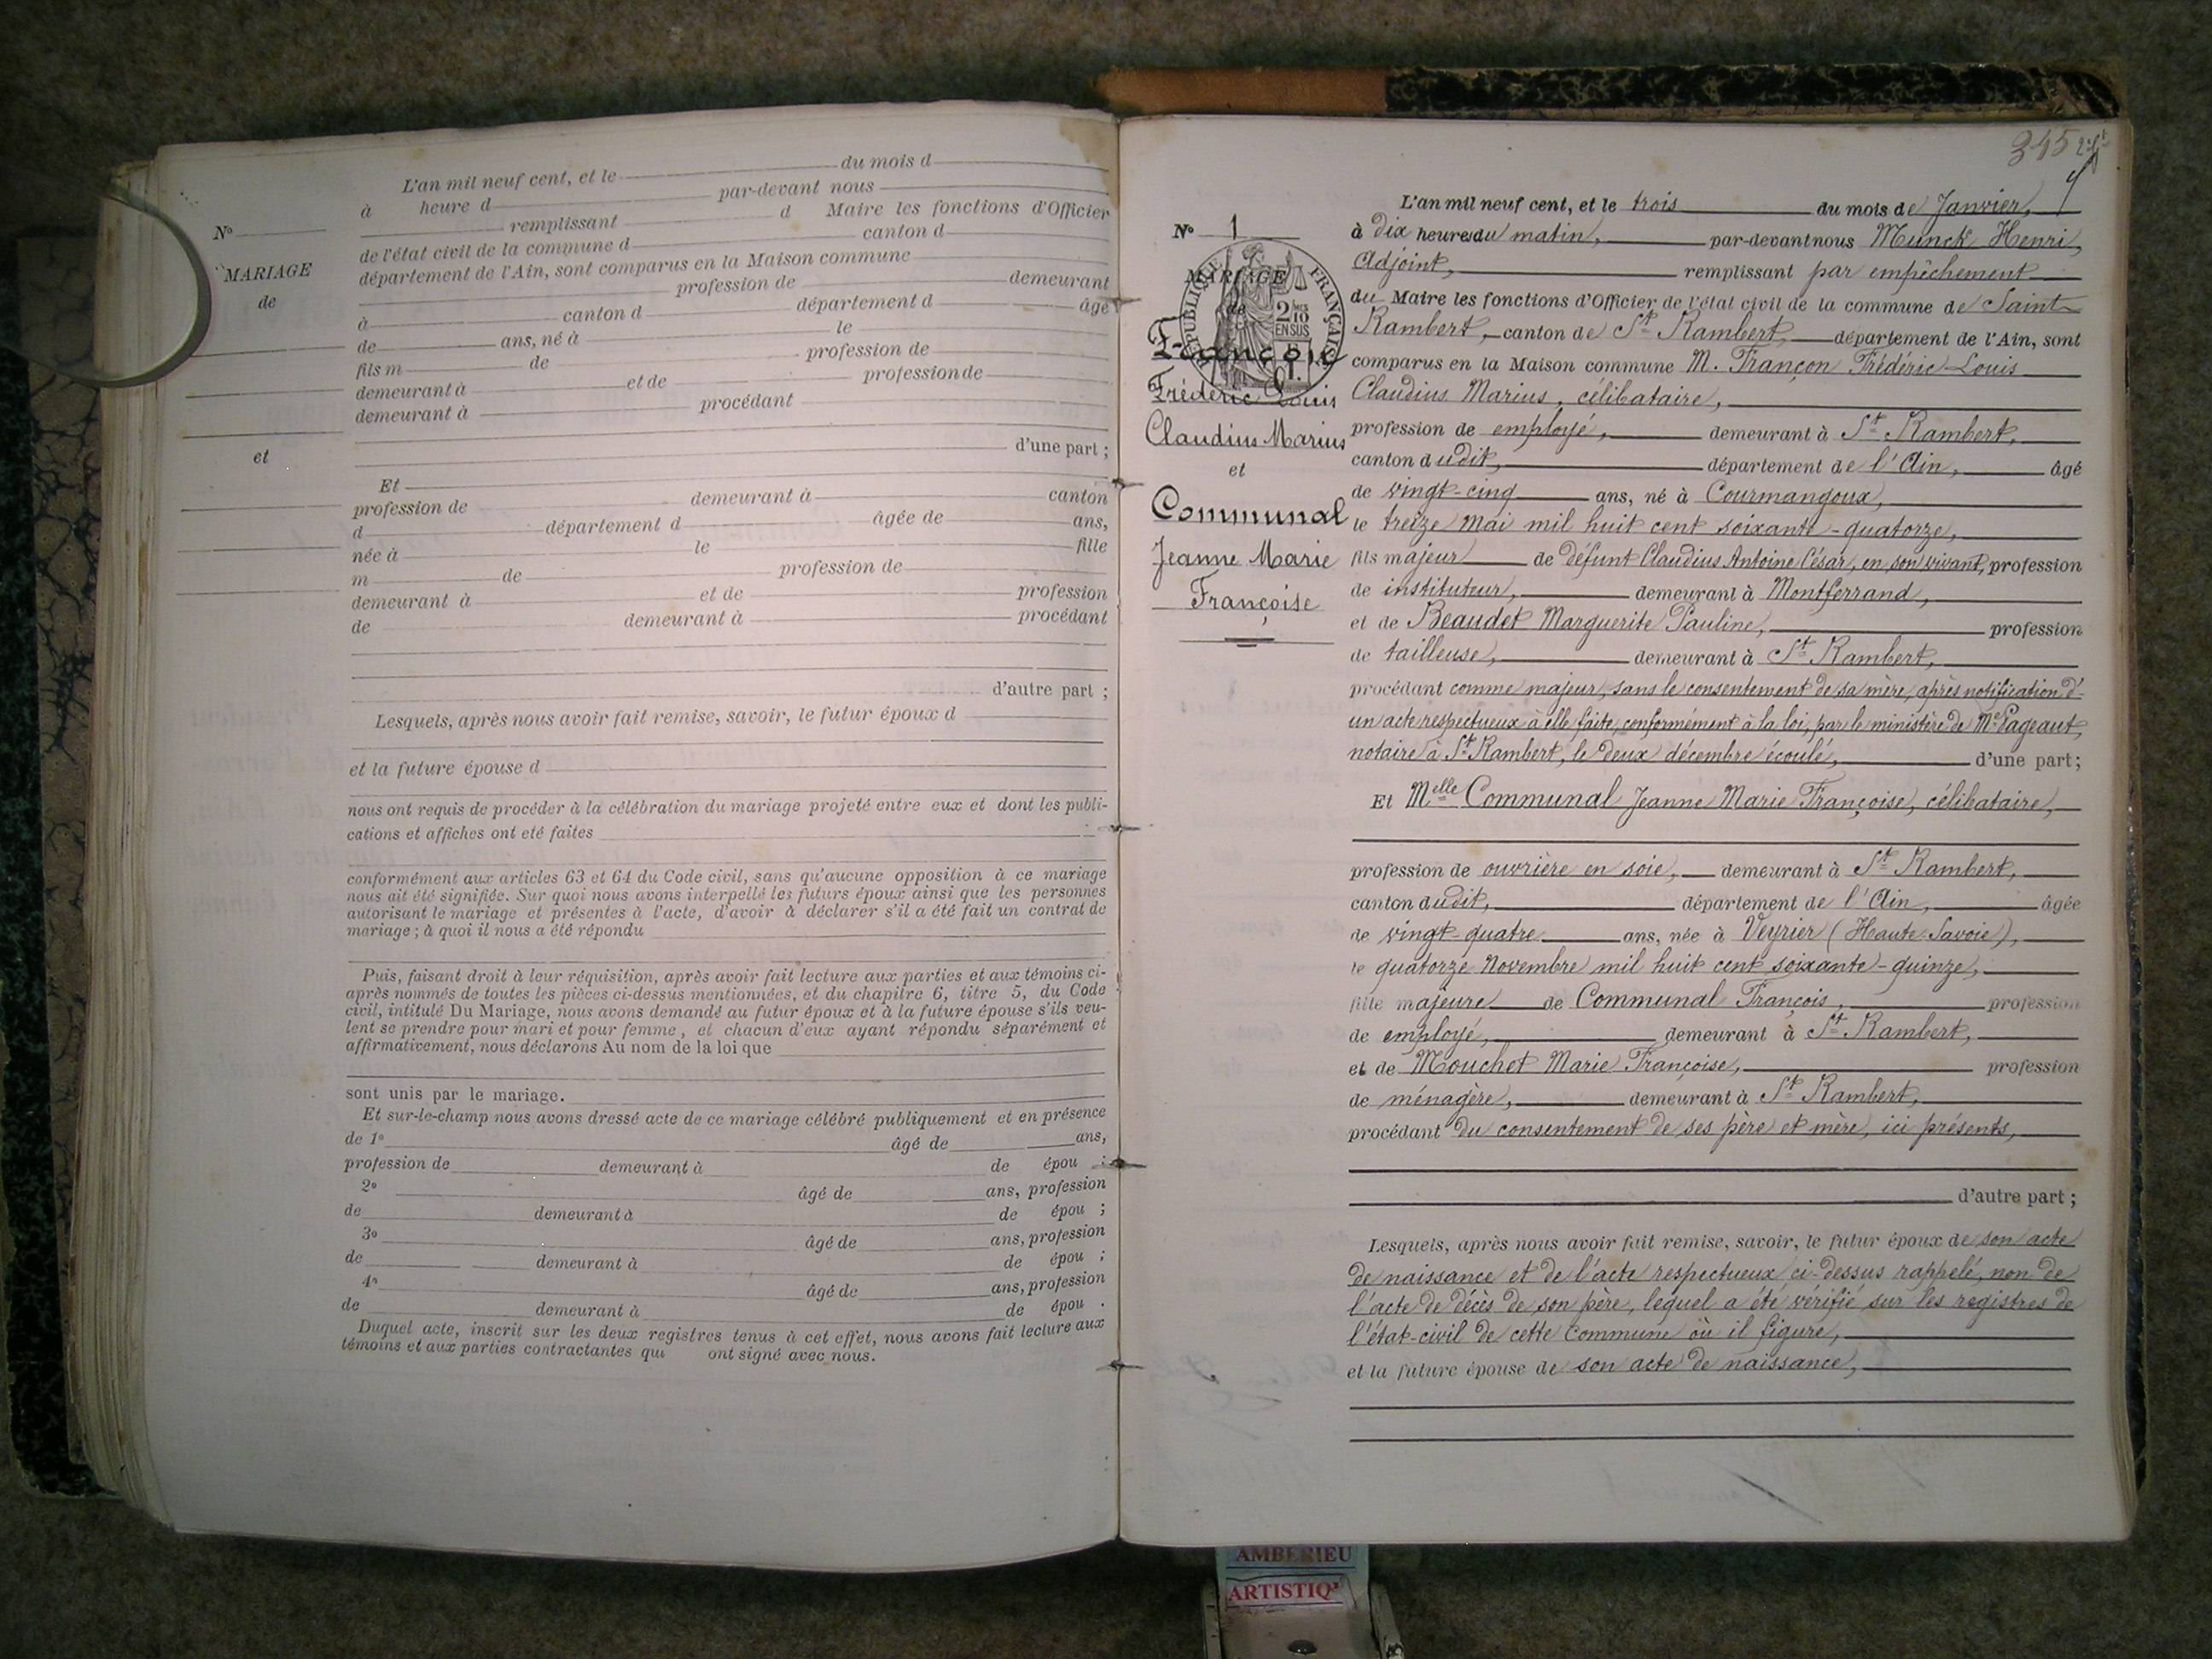 L'an mil neuf cent, et le du mois d
à heure d par-devant nous
remplissant d Maire les fonctions d'Officier
de l'état civil de la commune d canton d
département de l'Ain, sont comparus en la Maison commune
profession de demeurant
à canton d département d âgé
de ans, né à le
fils m de profession de
demeurant à et de profession de
demeurant à procédant
d'une part ;
Et
profession de demeurant à canton
d département d âgée de ans,
née à le fille
m de profession de
demeurant à et de profession
de demeurant à procédant
d'autre part ;
Lesquels, après nous avoir fait remise, savoir, le futur époux d
et la future épouse d
nous ont requis de procéder à la célébration du mariage projeté entre eux et dont les publi-
cations et affiches ont eté faites
conformément aux articles 63 et 64 du Code civil, sans qu'aucune opposition à ce mariage
nous ait été signifiée. Sur quoi nous avons interpellé les futurs époux ainsi que les personnes
autorisant le mariage et présentes à l'acte, d'avoir à déclarer s'il a été fait un contrat de
mariage ; à quoi il nous a été répondu
Puis, faisant droit à leur réquisition, après avoir fait lecture aux parties et aux témoins ci-
après nommés de toutes les pièces ci-dessus mentionnées, et du chapitre 6, titre 5, du Code
civil, intitulé Du Mariage, nous avons demandé au futur époux et à la future épouse s'ils veu-
lent se prendre pour mari et pour femme, et chacun d'eux ayant répondu séparément et
affirmativement, nous déclarons Au nom de la loi que
sont unis par le mariage.
Et sur-le-champ nous avons dressé acte de ce mariage célébré publiquement et en présence
de 1° âgé de ans,
profession de demeurant à de épou ;
2° âgé de ans, profession
de demeurant à de épou ;
3° âgé de ans, profession
de demeurant à de épou ;
4° âgé de ans, profession
de demeurant à de épou .
Duquel acte, inscrit sur les deux registres tenus à cet effet, nous avons fait lecture aux
témoins et aux parties contractantes qui ont signé avec nous.
N°
MARIAGE
de
et
345
N° 1
MARIAGE
de
RÉPUBLIQUE FRANÇAISE
2/10
EN SUS
Françon
Frédéric Louis
Claudius Marius
et
Communal
Jeanne Marie
Françoise
L'an mil neuf cent, et le trois du mois de Janvier,
à dix heures du matin, par-devant nous Munck Henri,
Adjoint, remplissant par empêchement
du Maire les fonctions d'Officier de l'état civil de la commune de Saint-
Rambert, canton de St Rambert, département de l'Ain, sont
comparus en la Maison commune M. Françon Frédéric Louis
Claudius Marius, célibataire,
profession de employé, demeurant à St Rambert,
canton dudit, département de l'Ain, âgé
de vingt-cinq ans, né à Courmangoux,
le treize Mai mil huit cent soixante-quatorze,
fils majeur de défunt Claudius Antoine César, en son vivant, profession
de instituteur, demeurant à Montferrand,
et de Beaudet Marguerite Pauline, profession
de tailleuse, demeurant à St Rambert,
procédant comme majeur, sans le consentement de sa mère, après notification d'
un acte respectueux à elle faite, conformément à la loi, par le ministère de Me Pageaut,
notaire à St Rambert, le deux décembre écoulé, d'une part;
Et Melle Communal Jeanne Marie Françoise, célibataire,
profession de ouvrière en soie, demeurant à St Rambert,
canton dudit, département de l'Ain, âgée
de vingt-quatre ans, née à Veyrier (Haute-Savoie),
le quatorze Novembre mil huit cent soixante-quinze,
fille majeure de Communal François, profession
de employé, demeurant à St Rambert,
et de Mouchet Marie Françoise, profession
de ménagère, demeurant à St Rambert,
procédant du consentement de ses père et mère, ici présents,
d'autre part ;
Lesquels, après nous avoir fait remise, savoir, le futur époux de son acte
de naissance et de l'acte respectueux ci-dessus rappelé, non de
l'acte de décès de son père, lequel a été vérifié sur les registres de
l'état-civil de cette commune où il figure,
et la future épouse de son acte de naissance,
AMBERIEU
ARTISTIQ